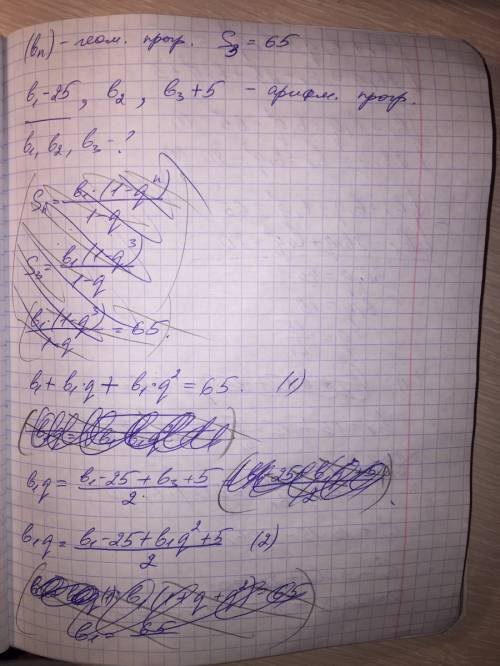 (bₙ) - геом. прогр. S₃ = 65
b₁-25, b₂, b₃+5 - арифм. прогр.
b₁, b₂, b₃ - ?
Sₙ = b₁·(1-qⁿ)/1-q
S₃ = b₁(1-q³)/1-q
b₁·(1-q³)/1-q = 65.
b₁ + b₁·q + b₁·q² = 65. (1)
b₁q = b₁-25+b₃+5/2
b₁q = b₁-25+b₁q²+5/2 (2)